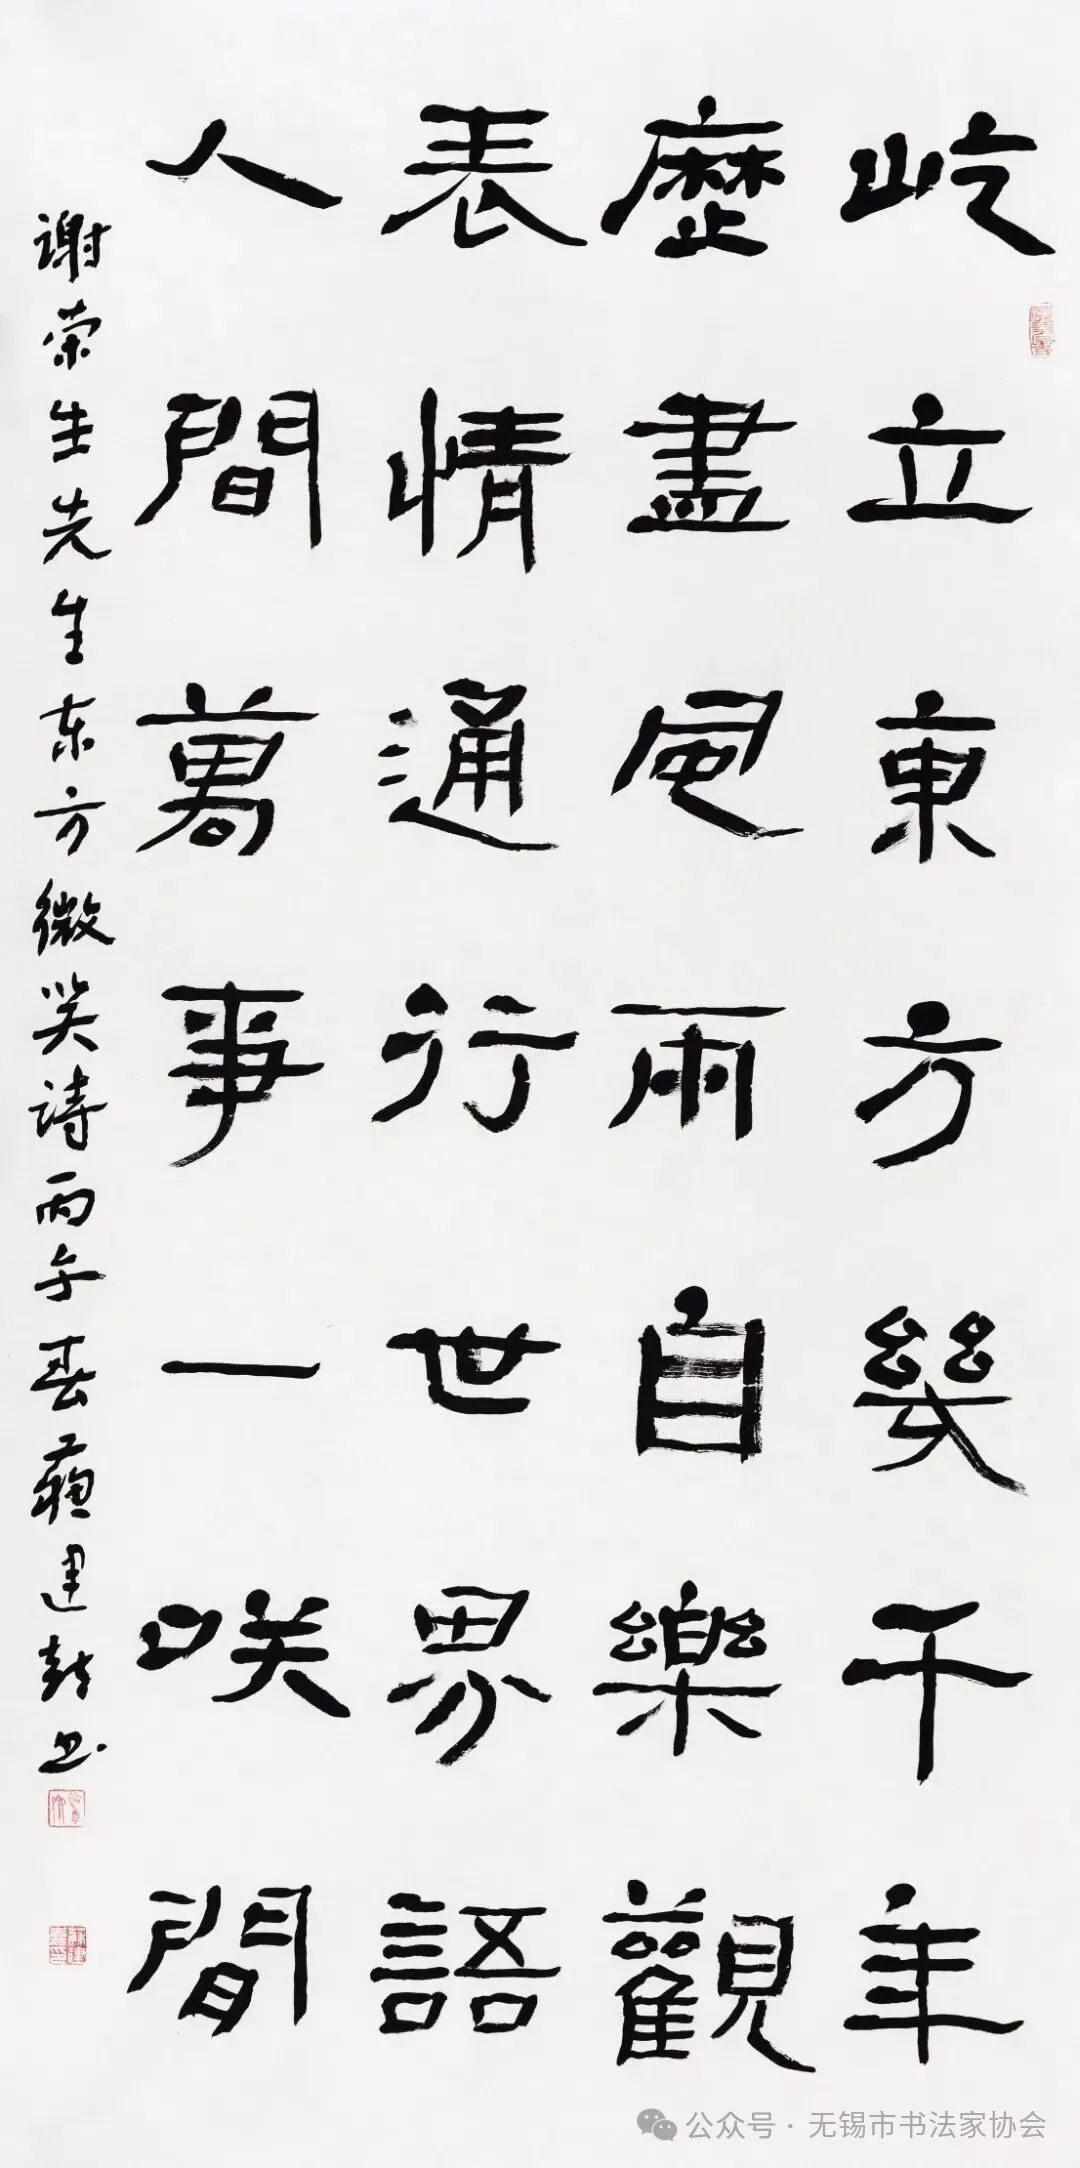 屹立東方幾千年
歷盡風雨自樂觀
表情通行世界語
人間萬事一咲間
谢荣生先生东方微笑詩丙午春蘓建新书
公众号·无锡市书法家协会